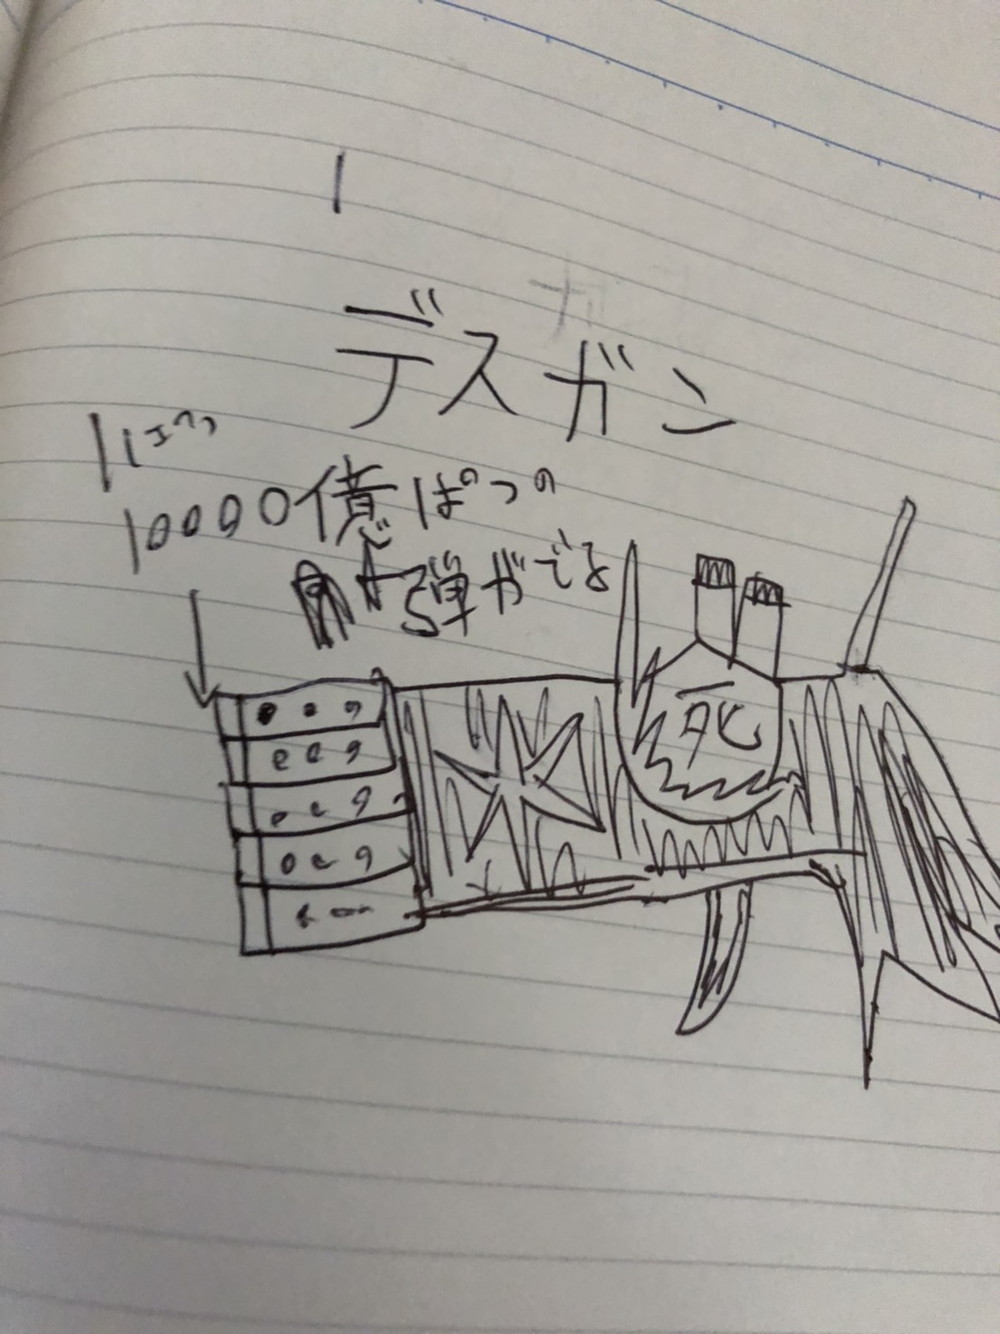 デスガン
1ぱつ
10000億ぱつの
弾がでる
死